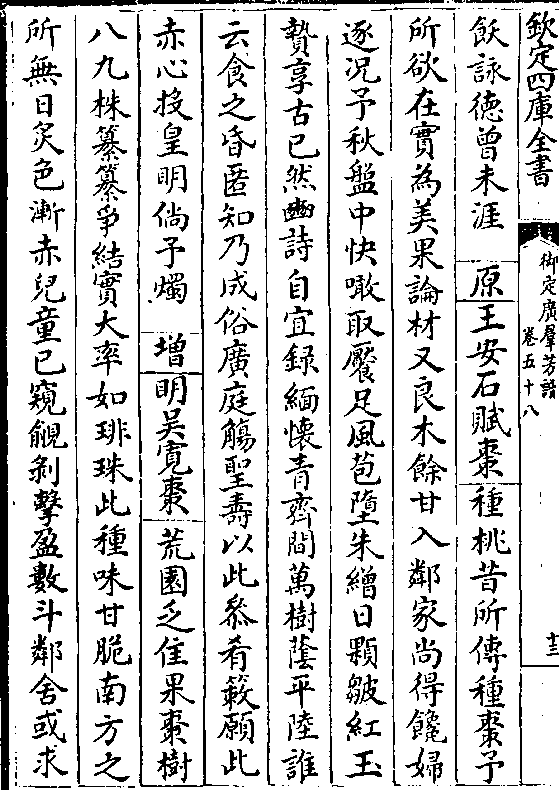 欽定四庫全書
御定廣羣芳譜
卷五十八
十三
飫詠德曾未涯 原 王安石賦棗 種桃昔所傳種棗予
所欲在實為美果論材又良木餘甘入鄰家尚得饞婦
逐況予秋盤中快噉取饜足風苞墮朱繒日顆皺紅玉
贄享古已然豳詩自宜録緬懷青齊間萬樹蔭平陸誰
云食之昏匿知乃成俗廣庭觴聖壽以此叅肴蔌願此
赤心投皇明倘予燭 增 明吳寛棗 荒園乏佳果棗樹
八九株纂纂爭結實大率如琲珠此種味甘脆南方之
所無日炙色漸赤兒童已窺覦剥擊盈數斗鄰舍或求